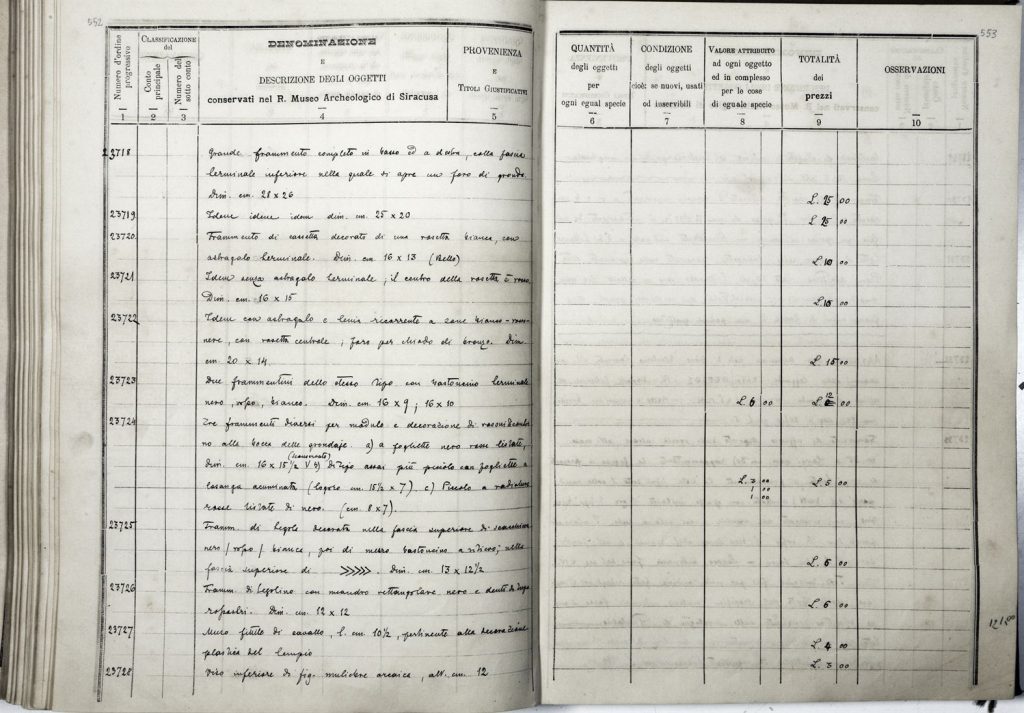 552
Numero d'ordine progressivo
CLASSIFICAZIONE del
Conto principale
Numero del sotto conto
DENOMINAZIONE
E
DESCRIZIONE DEGLI OGGETTI
conservati nel R. Museo Archeologico di Siracusa
PROVENIENZA
E
TITOLI GIUSTIFICATIVI
1 2 3 4 5
23718 Grande frammento completo in basso ed a destra, colla fascia
terminale inferiore nella quale si apre un foro di gronda.
Dim. cm. 28 x 26
23719 Idem idem idem dim. cm. 25 x 20
23720 Frammento di cassetta decorato di una rosetta bianca, con
astragalo terminale. Dim. cm. 16 x 13 (Bello)
23721 Idem senza astragalo terminale; il centro della rosetta è rosso
Dim. cm. 16 x 15
23722 Idem con astragalo e tenia ricorrente a zone bianco-rosso-
nere, con rosetta centrale; foro per chiodo di bronzo. Dim
cm. 20 x 14.
23723 Due frammentini dello stesso tipo con bastoncino terminale
nero, rosso, bianco. Dim. cm. 16 x 9; 16 x 10
23724 Tre frammenti diversi per modulo e decorazione di
no alla bocca delle grondaje. a) a fogliette nero listate,
dim. cm. 16 x 15 1/2 b) di tipo assai più piccolo con fogliette a
losanga acuminata (logoro cm. 15 1/2 x 7). c) Piccolo a radiature
rosse listate di nero. (cm. 8 x 7).
23725 Framm. di tegole decorata nella fascia superiore di
nero / rosso / bianca, poi di mezzo bastoncino a ; nella
fascia superiore di >>>>>. Dim. cm. 13 x 12 1/2
23726 Framm. di tegolino con meandro rettangolare nero e denti di lupo
rossastri. Dim. cm. 12 x 12
23727 Muso fittile di cavallo, l. cm. 10 1/2, pertinente alla decorazione
plastica del tempio
23728 Viso inferiore di fig. muliebre arcaica, alt. cm. 12
553
QUANTITÀ
degli oggetti
per
ogni egual specie
CONDIZIONE
degli oggetti
cioè: se nuovi, usati
od inservibili
VALORE ATTRIBUITO
ad ogni oggetto
ed in complesso
per le cose
di eguale specie
TOTALITÀ
dei
prezzi
OSSERVAZIONI
6 7 8 9 10
L. 25 00
L. 25 00
L. 10 00
L. 10 00
L. 15 00
L. 6 00 L. 12 00
L. 3 00 L. 5 00
1 00
1 00
L. 5 00
L. 6 00
L. 4 00
L. 3 00